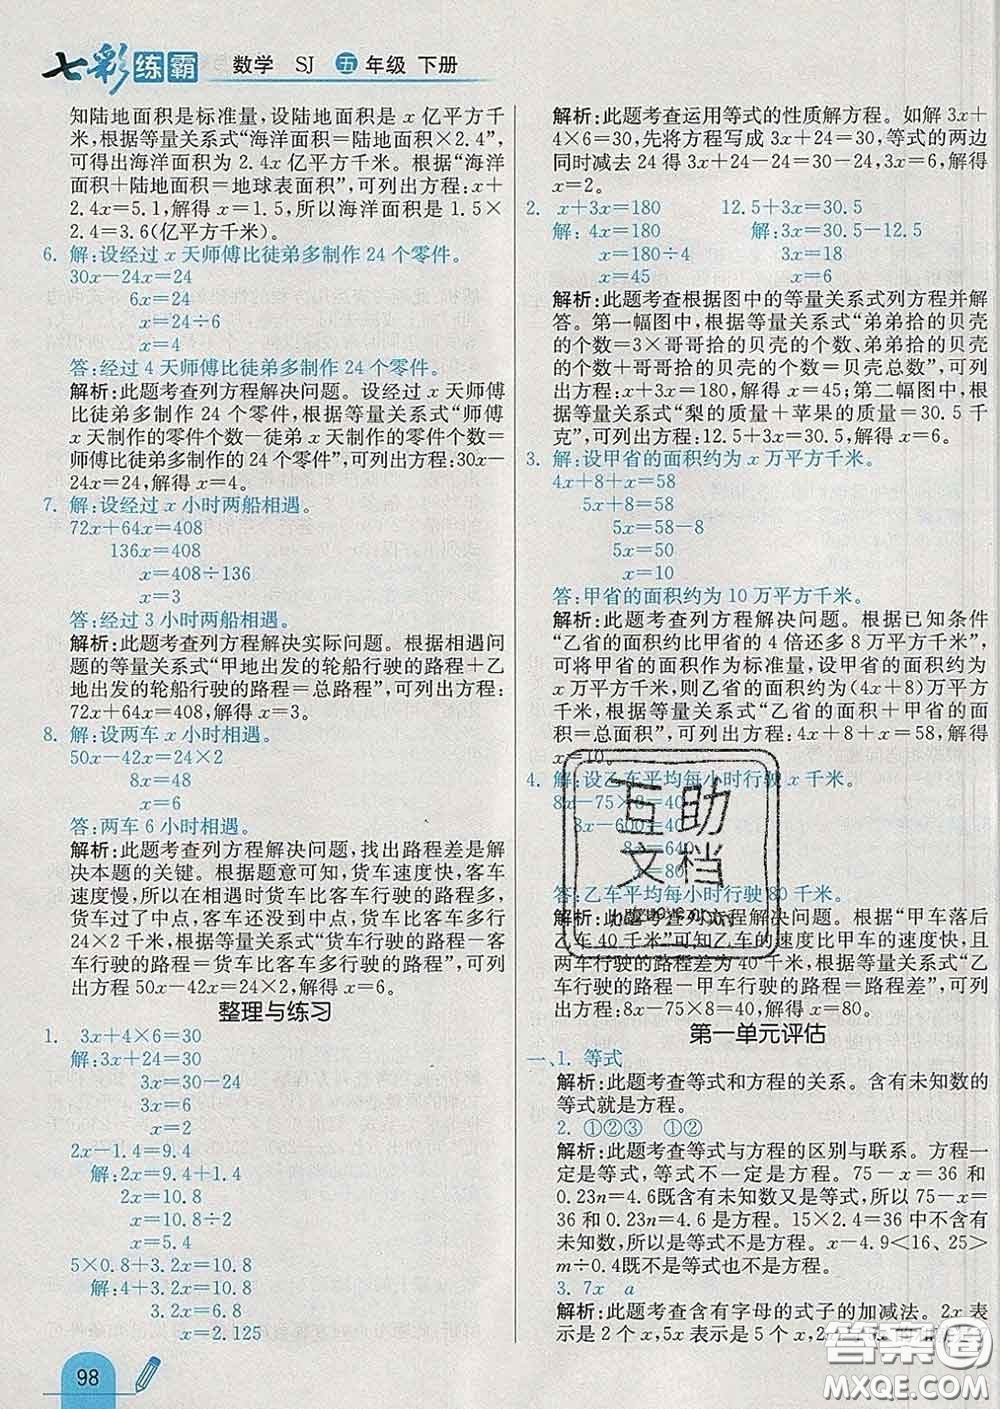 七彩练霸 数学 SJ 五年级 下册
知陆地面积是标准量,设陆地面积是 x 亿平方千
米,根据等量关系式“海洋面积=陆地面积×2.4”,
可得出海洋面积为 2.4x 亿平方千米。根据“海洋
面积+陆地面积=地球表面积”,可列出方程:x+
2.4x=5.1,解得 x=1.5,所以海洋面积是 1.5×
2.4=3.6(亿平方千米)。
6. 解:设经过 x 天师傅比徒弟多制作 24 个零件。
30x-24x=24
6x=24
x=24÷6
x=4
答:经过 4 天师傅比徒弟多制作 24 个零件。
解析:此题考查列方程解决问题。设经过 x 天师傅
比徒弟多制作 24 个零件,根据等量关系式“师傅
x 天制作的零件个数-徒弟 x 天制作的零件个数=
师傅比徒弟多制作的 24 个零件”,可列出方程:30x-
24x=24,解得 x=4。
7. 解:设经过 x 小时两船相遇。
72x+64x=408
136x=408
x=408÷136
x=3
答:经过 3 小时两船相遇。
解析:此题考查列方程解决实际问题。根据相遇问
题的等量关系式“甲地出发的轮船行驶的路程+乙
地出发的轮船行驶的路程=总路程”,可列出方程:
72x+64x=408,解得 x=3。
8. 解:设两车 x 小时相遇。
50x-42x=24×2
8x=48
x=6
答:两车 6 小时相遇。
解析:此题考查列方程解决问题,找出路程差是解决
本题的关键。根据题意可知,货车速度快,客车
速度慢,所以在相遇时货车比客车行驶的路程多,
货车过了中点,客车还没到中点,货车比客车多行
24×2 千米,根据等量关系式“货车行驶的路程-客
车行驶的路程=货车比客车多行驶的路程”,可列出
方程:50x-42x=24×2,解得 x=6。
整理与练习
1. 3x+4×6=30
解:3x+24=30
3x=30-24
3x=6
x=2
2x-1.4=9.4
解:2x=9.4+1.4
2x=10.8
x=10.8÷2
x=5.4
5×0.8+3.2x=10.8
解:4+3.2x=10.8
3.2x=6.8
x=2.125
98
解析:此题考查运用等式的性质解方程。如解 3x+
4×6=30,先将方程写成 3x+24=30,等式的两边
同时减去 24 得 3x+24-24=30-24,3x=6,解得
x=2。
2. x+3x=180 12.5+3x=30.5
解:4x=180 解:3x=30.5-12.5
x=180÷4 3x=18
x=45 x=6
解析:此题考查根据图中的等量关系式列方程并解
答。第一幅图中,根据等量关系式“弟弟拾的贝壳
的个数=3×哥哥拾的贝壳的个数、弟弟拾的贝壳
的个数+哥哥拾的贝壳的个数=贝壳总数”,可列
出方程:x+3x=180,解得 x=45;第二幅图中,根
据等量关系式“梨的质量+苹果的质量=30.5 千
克”,可列出方程:12.5+3x=30.5,解得 x=6。
3. 解:设甲省的面积约为 x 万平方千米。
4x+8+x=58
5x+8=58
5x=58-8
5x=50
x=10
答:甲省的面积约为 10 万平方千米。
解析:此题考查列方程解决问题。根据已知条件
“乙省的面积约比甲省的 4 倍还多 8 万平方千米”,
可将甲省的面积作为标准量,设甲省的面积约为
x 万平方千米,则乙省的面积约为(4x+8)万平方千
米,根据等量关系式“乙省的面积+甲省的面积
=总面积”,可列出方程:4x+8+x=58,解得
x=10。
4. 解:设乙车平均每小时行驶 x 千米。
8x-75×8=40
8x-600=40
x=80
答:乙车平均每小时行驶 80 千米。
解析:此题考查列方程解决问题。根据“甲车落后
乙车 40 千米”可知乙车的速度比甲车的速度快,且
两车行驶的路程差为 40 千米,根据等量关系式“乙
车行驶的路程-甲车行驶的路程=路程差”,可列
出方程:8x-75×8=40,解得 x=80。
第一单元评估
一、1. 等式
解析:此题考查等式和方程的关系。含有未知数的
等式就是方程。
2. ①②③ ①②
解析:此题考查等式与方程的区别与联系。方程一
定是等式,等式不一定是方程。75-x=36 和
0.23n=4.6既含有未知数又是等式,所以 75-x=
36 和 0.23n=4.6 是方程。15×2.4=36 中不含有
未知数,所以是等式不是方程。x-4.9<16、25>
m÷0.4既不是等式也不是方程。
3. 7x a
解析:此题考查含有字母的式子的加减法。2x 表
示是 2 个 x,5x 表示是 5 个 x,2
互助文档
答案圈
MXQE.COM